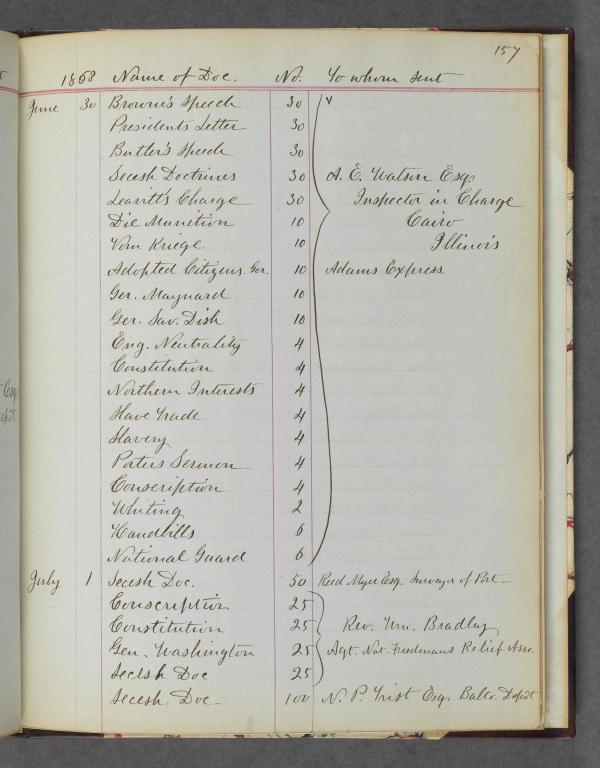 157
1868 Name of Doc. No. To whom sent
June 30 Brown's Speech 30
Presidents Letter 30
Butler's Speech 30
Secesh Doctrines 30 A. E. Watson Esqr
Leavitt's Charge 30 Inspector in Charge
Die Munition 10 Cairo
Vom Kriege 10 Illinois
Adopted Citizens. Ger. 10 Adams Express.
Ger. Maynard 10
Ger. Sav. Dish 10
Eng. Neutrality 4
Constitution 4
Northern Interests 4
Slave Trade 4
Slavery 4
Porters Sermon 4
Conscription 4
Whiting 2
Handbills 6
National Guard 6
July 1 Secesh Doc. 50 Reed Myer Esq. Surveyor of Port
Conscription 25
Constitution 25 Rev. Wm. Bradley
Gen. Washington 25 Agt. Nat. Freedmans Relief Asso.
Secesh Doc 25
Secesh. Doc 100 N. P. Trist Esq. Balto. Depot